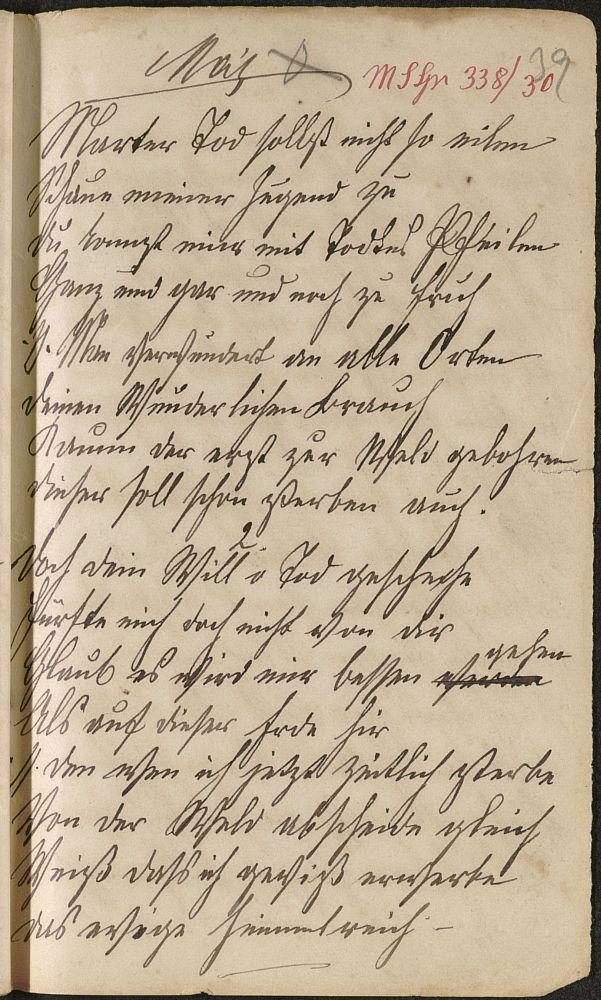 MS Hs 338/30 39
Marter Tod sollst nicht so eilen
Schaue meiner Jugend zu
du komst mir mit Todtes Pfeilen
Ganz und gar und noch zu früh
Man verwundert an alle Orten
deinen Wunderlichen Brauch
Kaum der erst zur Weld gebohren
dieser soll schon sterben auch.
2
doch dein Will o Tod geschehe
fürchte mich doch nicht von dir
Glaub es wird mir besser gehen
Als auf dieser Erde hir
den wen ich jetzt zeitlich sterbe
Von der Weld abscheide gleich
Weiß dass ich gewiß ererbe
das ewige Himmelreich –